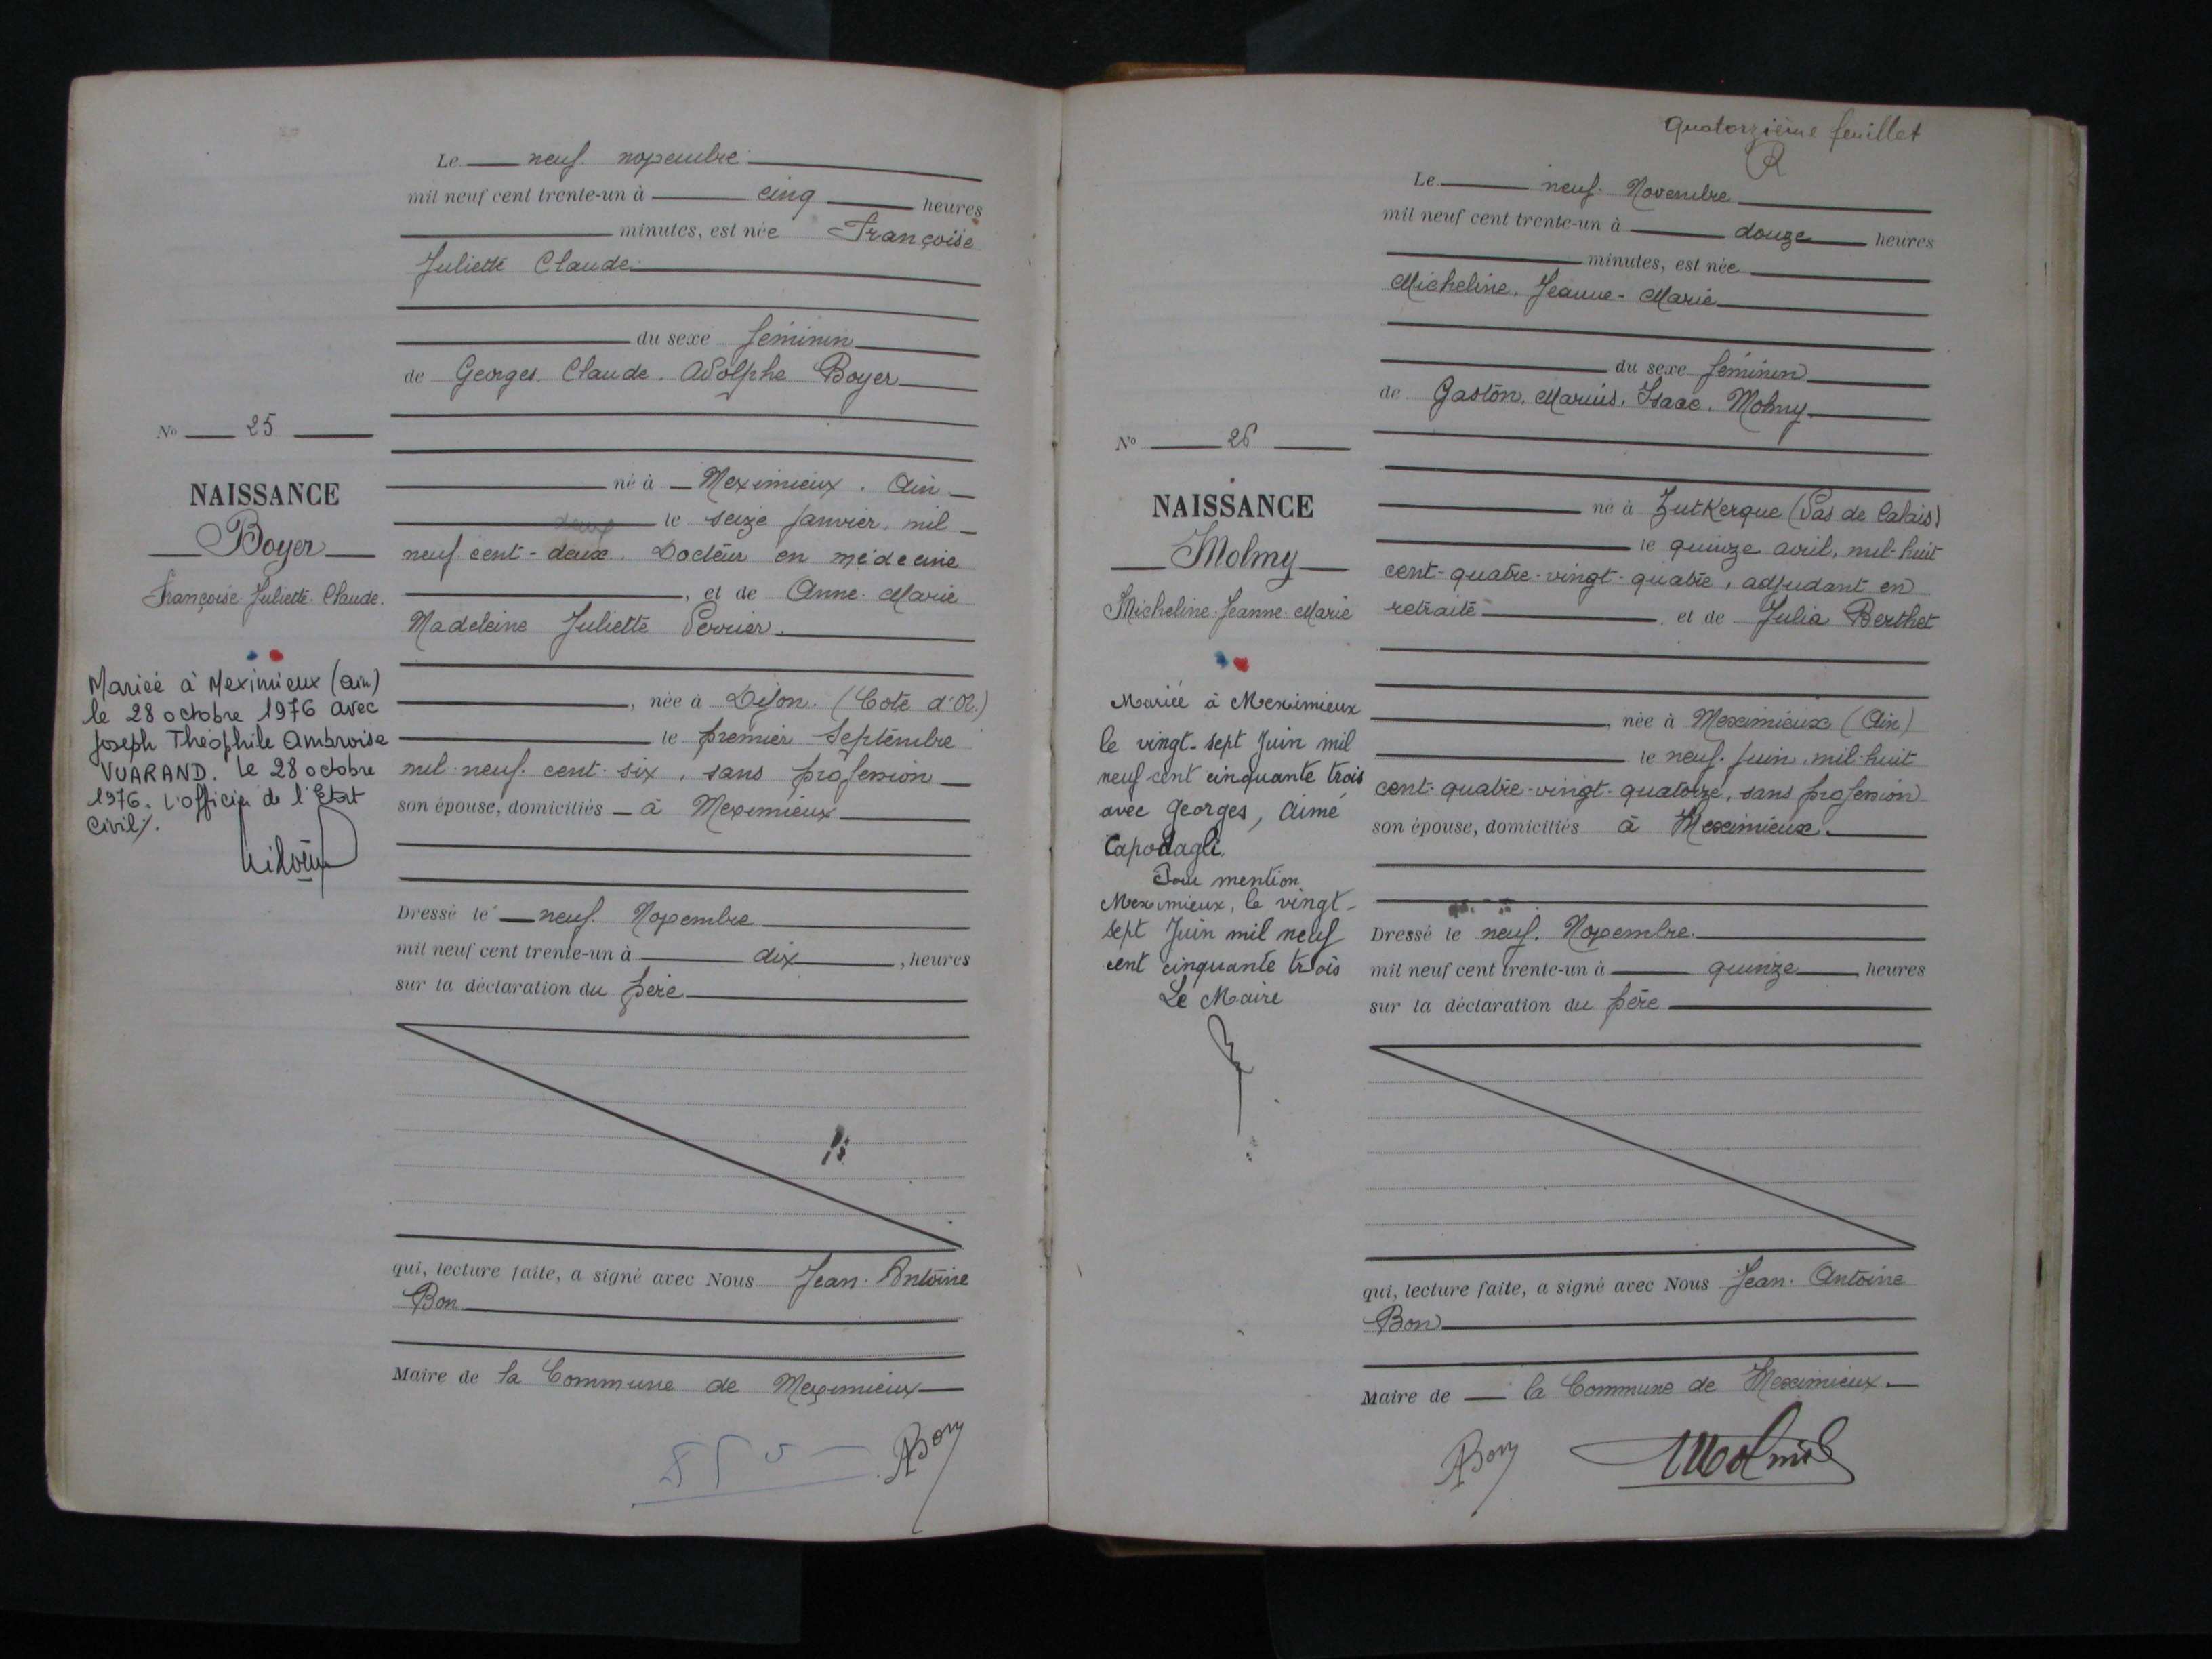 Le neuf novembre
mil neuf cent trente-un à cinq heures
minutes, est née Françoise
Juliette Claude
du sexe féminin
de Georges. Claude. Adolphe Boyer
né à Meximieux. Ain
le seize janvier. mil
neuf cent-deux. Docteur en médecine
, et de Anne. Marie
Madeleine Juliette Perrier.
, née à Dijon. (Côte d'Or.)
le premier Septembre
mil-neuf. cent-six, sans profession
son épouse, domiciliés à Meximieux
Dressé le neuf. Novembre
mil neuf cent trente-un à dix, heures
sur la déclaration du père
qui, lecture faite, a signé avec Nous Jean. Antoine
Bon
Maire de la Commune de Meximieux
ABon
No 25
NAISSANCE
Boyer
Françoise. Juliette. Claude.
Mariée à Meximieux (ain)
le 28 octobre 1976 avec
Joseph Théophile Ambroise
VUARAND. Le 28 octobre
1976. L'officier de l'Etat
Civil/.
Quatorzième feuillet
Le neuf. Novembre
mil neuf cent trente-un à douze heures
minutes, est née
Micheline. Jeanne-Marie
du sexe féminin
de Gaston. Marius. Isaac. Molmy
né à Zutkerque (Pas de Calais)
le quinze avril, mil-huit
cent-quatre-vingt-quatre, adjudant en
retraite, et de Julia Berthet
, née à Meximieux (Ain)
le neuf. Juin. mil-huit
cent-quatre-vingt-quatorze, sans profession
son épouse, domiciliés à Meximieux.
Dressé le neuf. Novembre.
mil neuf cent trente-un à quinze, heures
sur la déclaration du père
qui, lecture faite, a signé avec Nous Jean. Antoine
Bon
Maire de la Commune de Meximieux.
ABon
No 26
NAISSANCE
Molmy
Micheline-Jeanne-Marie
Mariée à Meximieux
le vingt-sept Juin mil
neuf cent cinquante trois
avec Georges, Aimé
Capodagli.
Pour mention
Meximieux, le vingt-
sept Juin mil neuf
cent cinquante trois
Le Maire